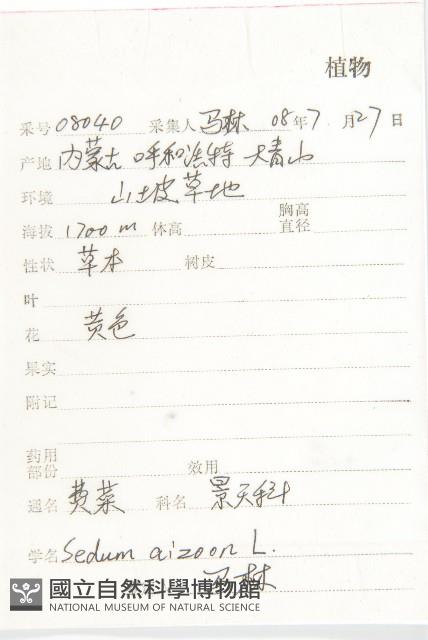 植物
采号 08040 采集人 马林 08年7月27日
产地 内蒙古 呼和浩特 大青山
环境 山坡草地
海拔 1700m 体高 胸高直径
性状 草本 树皮
叶
花 黄色
果实
附记
药用部份 效用
通名 费菜 科名 景天科
学名 Sedum aizoon L.
马林
國立自然科學博物館
NATIONAL MUSEUM OF NATURAL SCIENCE